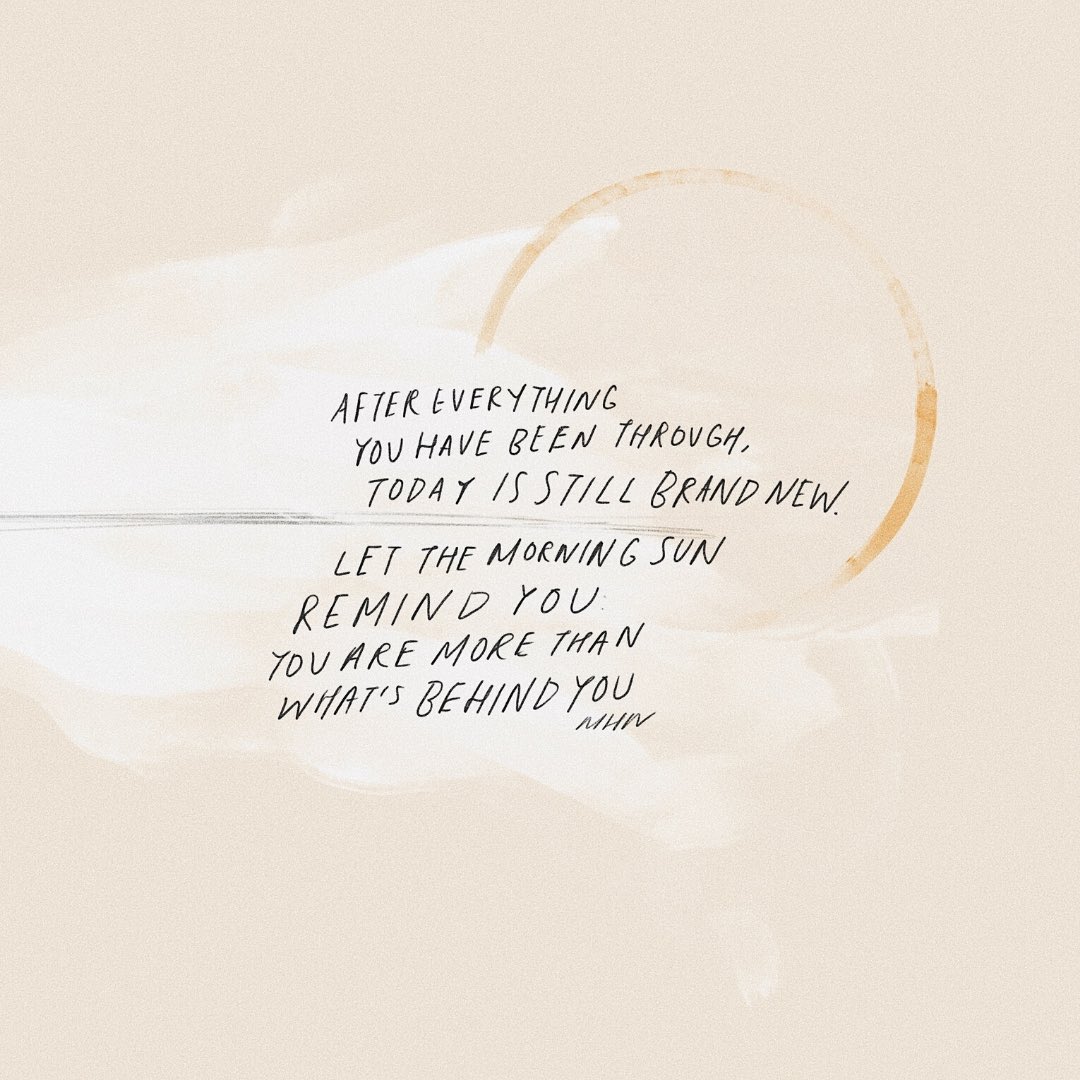 AFTER EVERYTHING
YOU HAVE BEEN THROUGH,
TODAY IS STILL BRAND NEW.
LET THE MORNING SUN
REMIND YOU:
YOU ARE MORE THAN
WHAT'S BEHIND YOU
MHN